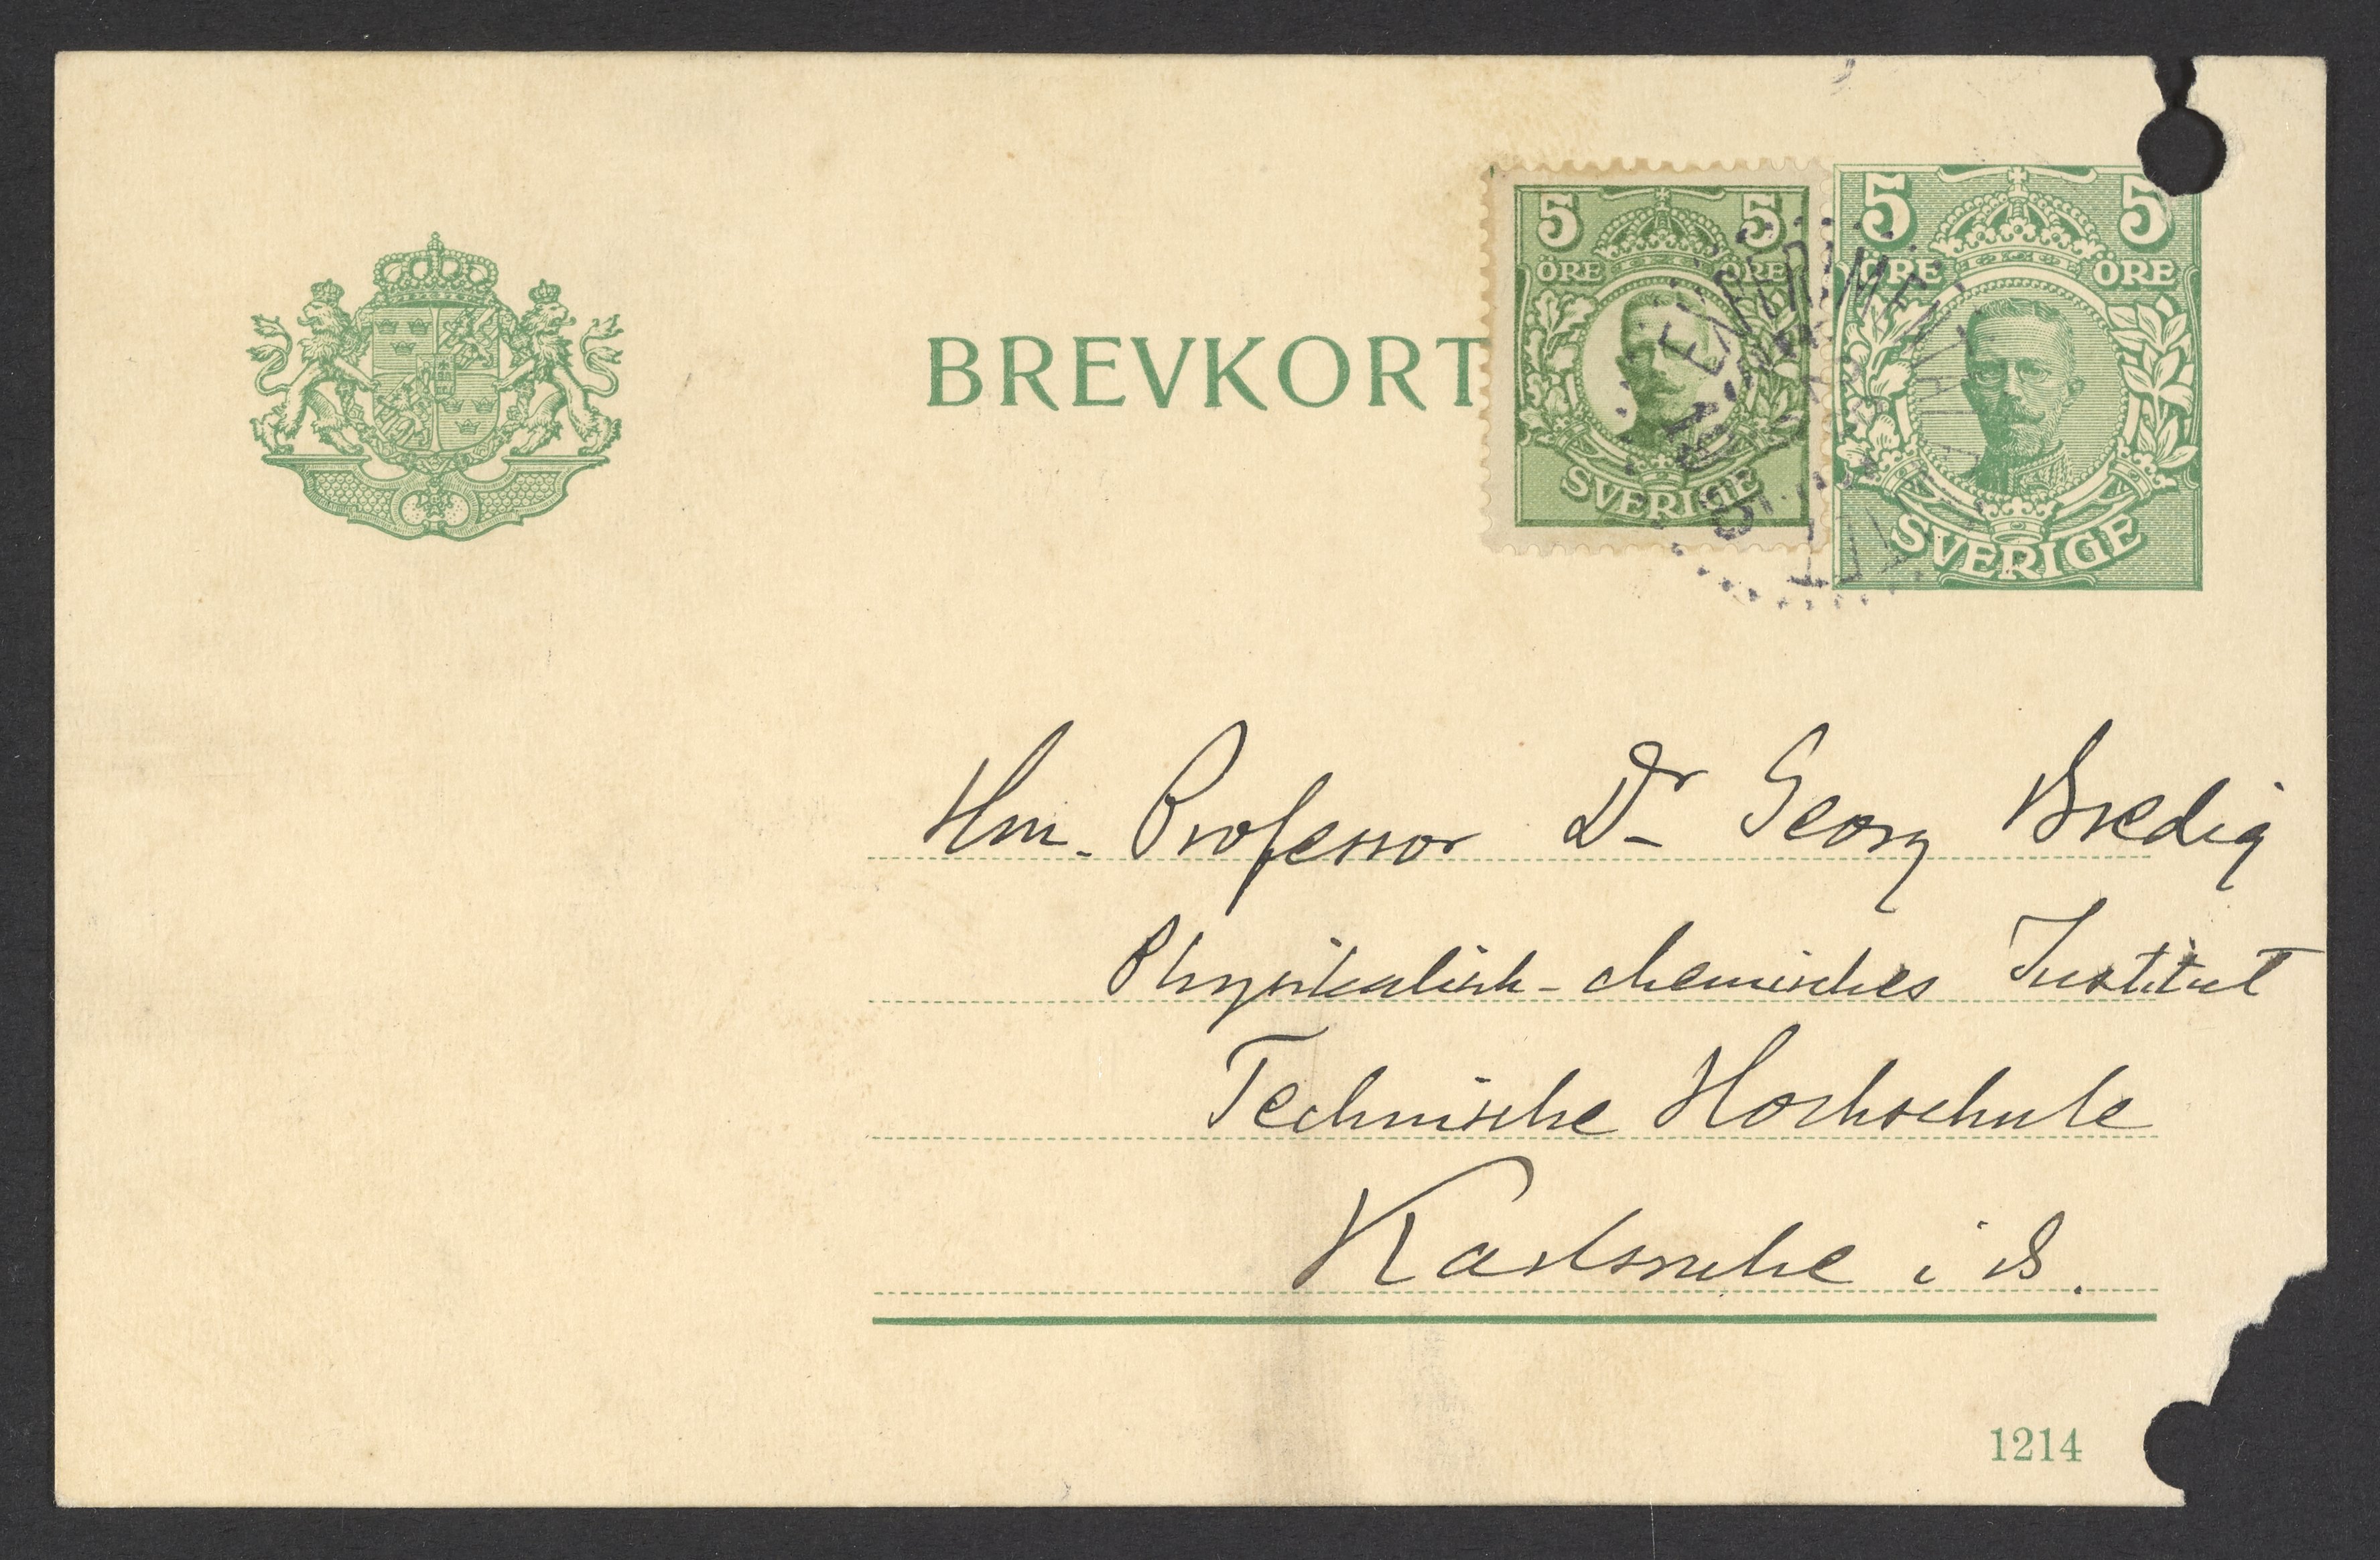 BREVKORT
5 5
ÖRE ÖRE
SVERIGE
5 5
ÖRE ÖRE
SVERIGE
Hrn. Professor Dr Georg Bredig
Physikalisch-chemisches Institut
Technische Hochschule
Karlsruhe i B.
1214